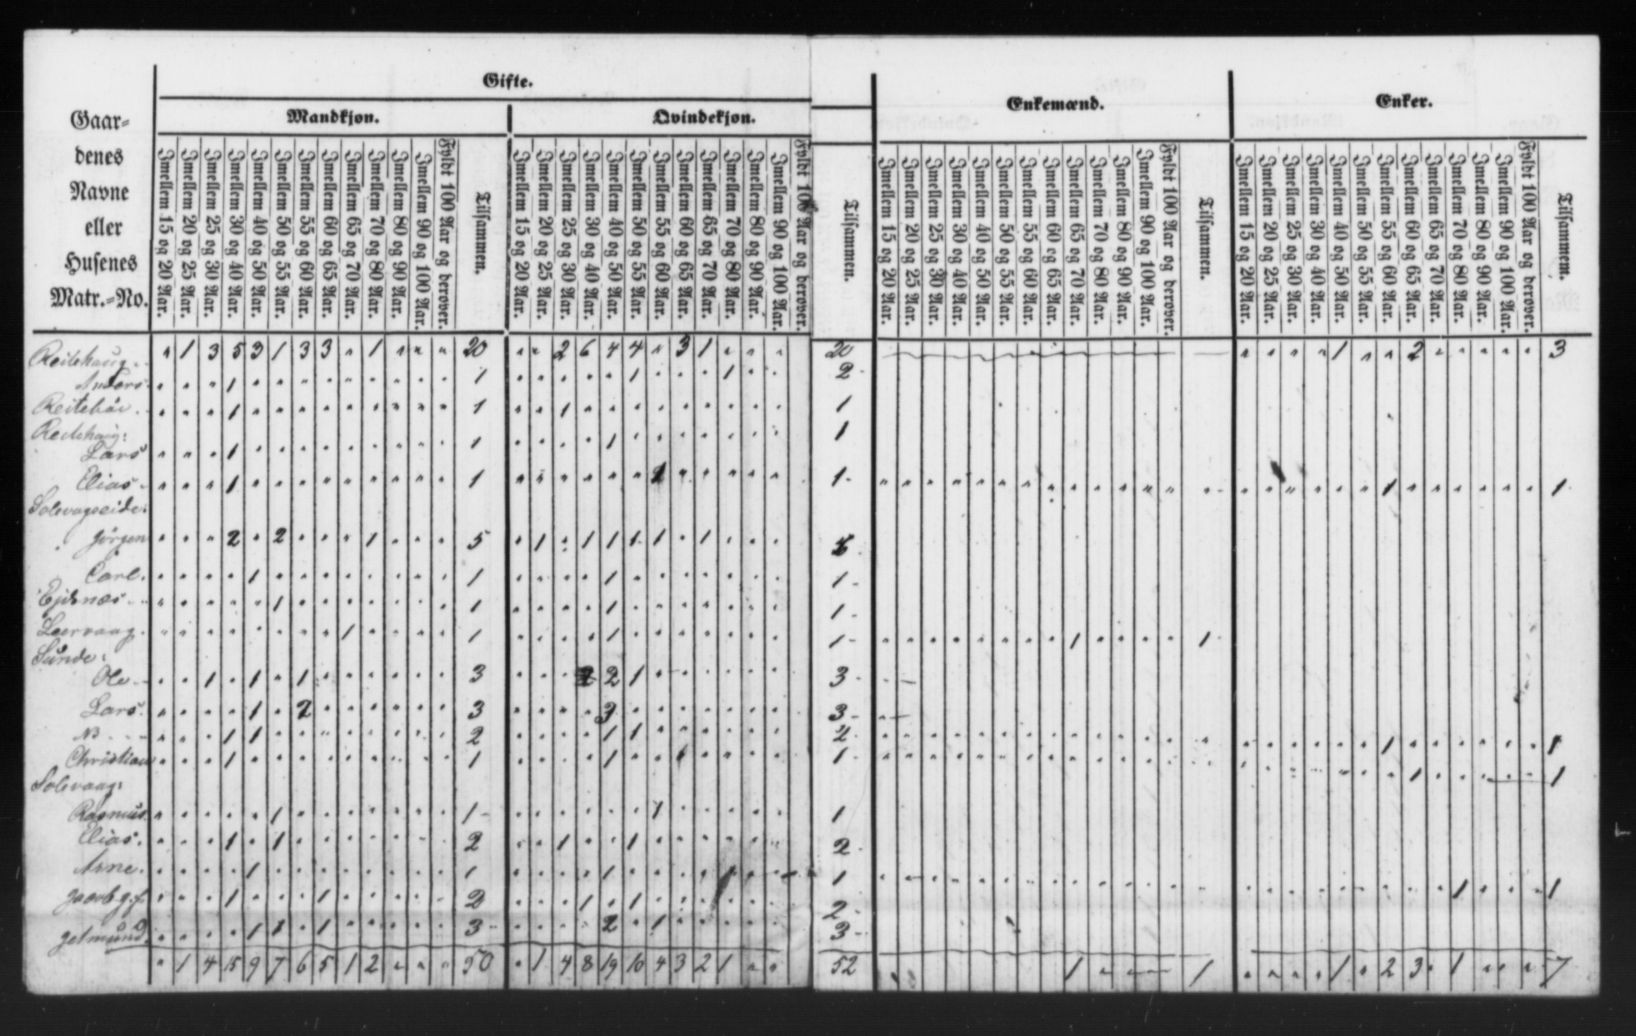 Gaardenes Navne eller Husenes Matr.-No.
Gifte.
Mandkjøn.
Imellem 15 og 20 Aar.
Imellem 20 og 25 Aar.
Imellem 25 og 30 Aar.
Imellem 30 og 40 Aar.
Imellem 40 og 50 Aar.
Imellem 50 og 55 Aar.
Imellem 55 og 60 Aar.
Imellem 60 og 65 Aar.
Imellem 65 og 70 Aar.
Imellem 70 og 80 Aar.
Imellem 80 og 90 Aar.
Imellem 90 og 100 Aar.
Fyldt 100 Aar og derover.
Tilsammen.
Qvindekjøn.
Imellem 15 og 20 Aar.
Imellem 20 og 25 Aar.
Imellem 25 og 30 Aar.
Imellem 30 og 40 Aar.
Imellem 40 og 50 Aar.
Imellem 50 og 55 Aar.
Imellem 55 og 60 Aar.
Imellem 60 og 65 Aar.
Imellem 65 og 70 Aar.
Imellem 70 og 80 Aar.
Imellem 80 og 90 Aar.
Imellem 90 og 100 Aar.
Fyldt 100 Aar og derover.
Tilsammen.
Enkemænd.
Imellem 15 og 20 Aar.
Imellem 20 og 25 Aar.
Imellem 25 og 30 Aar.
Imellem 30 og 40 Aar.
Imellem 40 og 50 Aar.
Imellem 50 og 55 Aar.
Imellem 55 og 60 Aar.
Imellem 60 og 65 Aar.
Imellem 65 og 70 Aar.
Imellem 70 og 80 Aar.
Imellem 80 og 90 Aar.
Imellem 90 og 100 Aar.
Fyldt 100 Aar og derover.
Tilsammen.
Enker.
Imellem 15 og 20 Aar.
Imellem 20 og 25 Aar.
Imellem 25 og 30 Aar.
Imellem 30 og 40 Aar.
Imellem 40 og 50 Aar.
Imellem 50 og 55 Aar.
Imellem 55 og 60 Aar.
Imellem 60 og 65 Aar.
Imellem 65 og 70 Aar.
Imellem 70 og 80 Aar.
Imellem 80 og 90 Aar.
Imellem 90 og 100 Aar.
Fyldt 100 Aar og derover.
Tilsammem.
Reitehaug " 1 3 5 3 1 3 3 " 1 " " " 20 " " 2 6 4 4 " 3 1 " " " 20 " " " " 1 " " 2 " " " " " 3
Anders 1 1 1 1 2
Reitebøe 1 1 1 1
Reitehaug:
Lars 1 1 1 1
Elias 1 1 1 1 1 1
Solevageide:
Jørgen 2 2 1 5 1 1 1 1 1 1
Carl 1 1 1 1
Ejdsnæs 1 1 1 1
Leervaag 1 1 1 1 1 1
Sunde:
Ole 1 1 1 3 2 1 3
Lars 1 2 3 3 3
No 1 1 2 1 1 2 1 1
Christian 1 1 1 1 1 1
Solevaag:
Rasmus 1 1 1 1
Elias 1 1 2 1 1 2
Arne 1 1 1 1 1 1
1 1 2 1 1 2
1 1 1 3 2 1 3
" 1 4 15 9 7 6 5 1 2 " " " 50 " 1 4 8 19 10 4 3 2 1 " " 52 1 1 " " " " 1 " 2 3 " 1 " " " 7